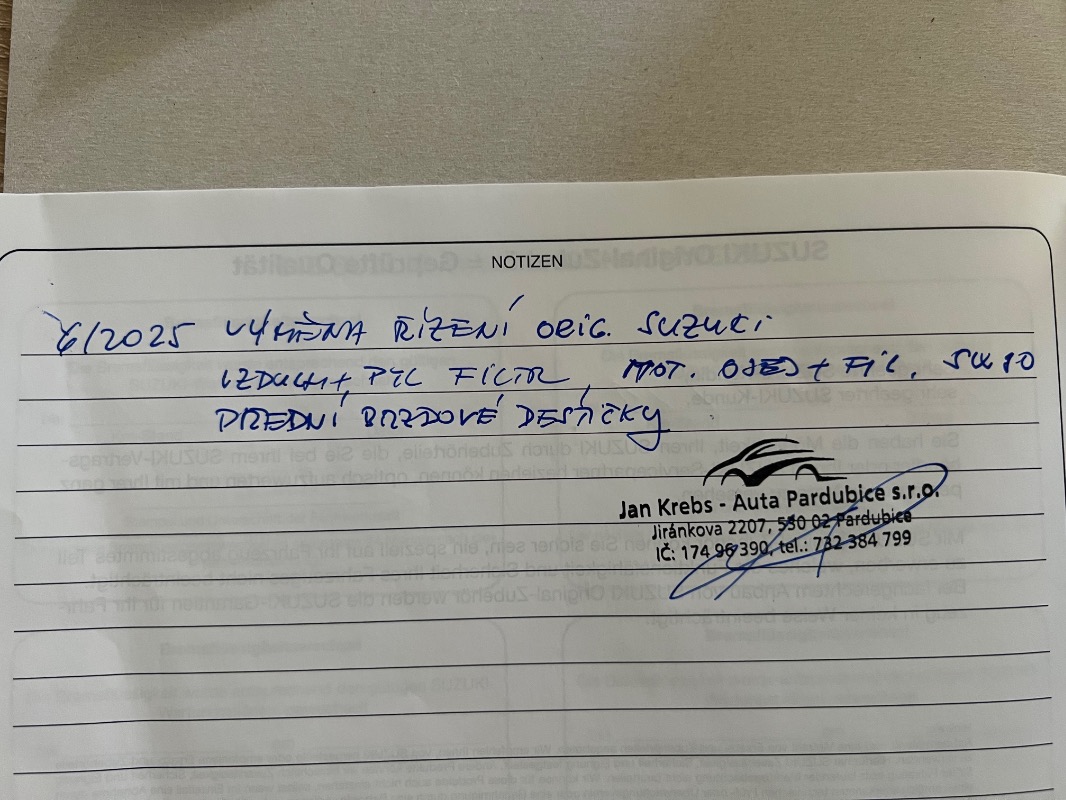 NOTIZEN
6/2025 VÝMĚNA ŘÍZENÍ ORIG. SUZUKI
VZDUCH+ PYL FILTR, MOT. OLEJ + FIL. 5W30
PŘEDNÍ BRZDOVÉ DESTIČKY
Jan Krebs - Auta Pardubice s.r.o.
Jiránkova 2207, 530 02 Pardubice
IČ: 174 96 390, tel.: 732 384 799